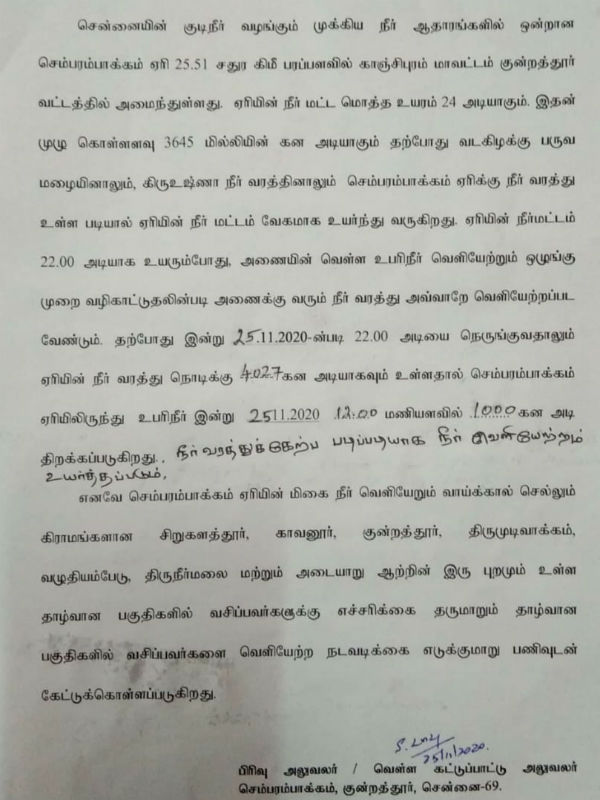 சென்னையின் குடிநீர் வழங்கும் முக்கிய நீர் ஆதாரங்களில் ஒன்றான
செம்பரம்பாக்கம் ஏரி 25.51 சதுர கிமீ பரப்பளவில் காஞ்சிபுரம் மாவட்டம் குன்றத்தூர்
வட்டத்தில் அமைந்துள்ளது. ஏரியின் நீர் மட்ட மொத்த உயரம் 24 அடியாகும். இதன்
முழு கொள்ளளவு 3645 மில்லியின் கன அடியாகும் தற்போது வடகிழக்கு பருவ
மழையினாலும், கிருஉஷ்ணா நீர் வரத்தினாலும் செம்பரம்பாக்கம் ஏரிக்கு நீர் வரத்து
உள்ள படியால் ஏரியின் நீர் மட்டம் வேகமாக உயர்ந்து வருகிறது. ஏரியின் நீர்மட்டம்
22.00 அடியாக உயரும்போது, அணையின் வெள்ள உபரிநீர் வெளியேற்றும் ஒழுங்கு
முறை வழிகாட்டுதலின்படி அணைக்கு வரும் நீர் வரத்து அவ்வாறே வெளியேற்றப்பட
வேண்டும். தற்போது இன்று 25.11.2020-ன்படி 22.00 அடியை நெருங்குவதாலும்
ஏரியின் நீர் வரத்து நொடிக்கு 4027 கன அடியாகவும் உள்ளதால் செம்பரம்பாக்கம்
ஏரியிலிருந்து உபரிநீர் இன்று 25.11.2020 12.00 மணியளவில் 1000 கன அடி
திறக்கப்படுகிறது., நீர்வரத்துக்கேற்ப படிப்படியாக நீர் வெளியேற்றம்
உயர்த்தப்படும்.
எனவே செம்பரம்பாக்கம் ஏரியின் மிகை நீர் வெளியேறும் வாய்க்கால் செல்லும்
கிராமங்களான சிறுகளத்தூர், காவனூர், குன்றத்தூர், திருமுடிவாக்கம்,
வழுதியம்பேடு, திருநீர்மலை மற்றும் அடையாறு ஆற்றின் இரு புறமும் உள்ள
தாழ்வான பகுதிகளில் வசிப்பவர்களுக்கு எச்சரிக்கை தருமாறும் தாழ்வான
பகுதிகளில் வசிப்பவர்களை வெளியேற்ற நடவடிக்கை எடுக்குமாறு பணிவுடன்
கேட்டுக்கொள்ளப்படுகிறது.
25/11/2020.
பிரிவு அலுவலர் / வெள்ள கட்டுப்பாட்டு அலுவலர்
செம்பரம்பாக்கம், குன்றத்தூர், சென்னை-69.